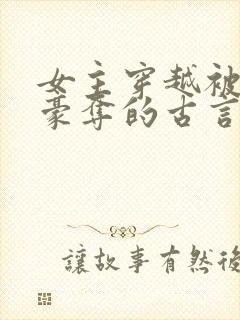 女主穿越被
豪奪的古言
讓故事有然後